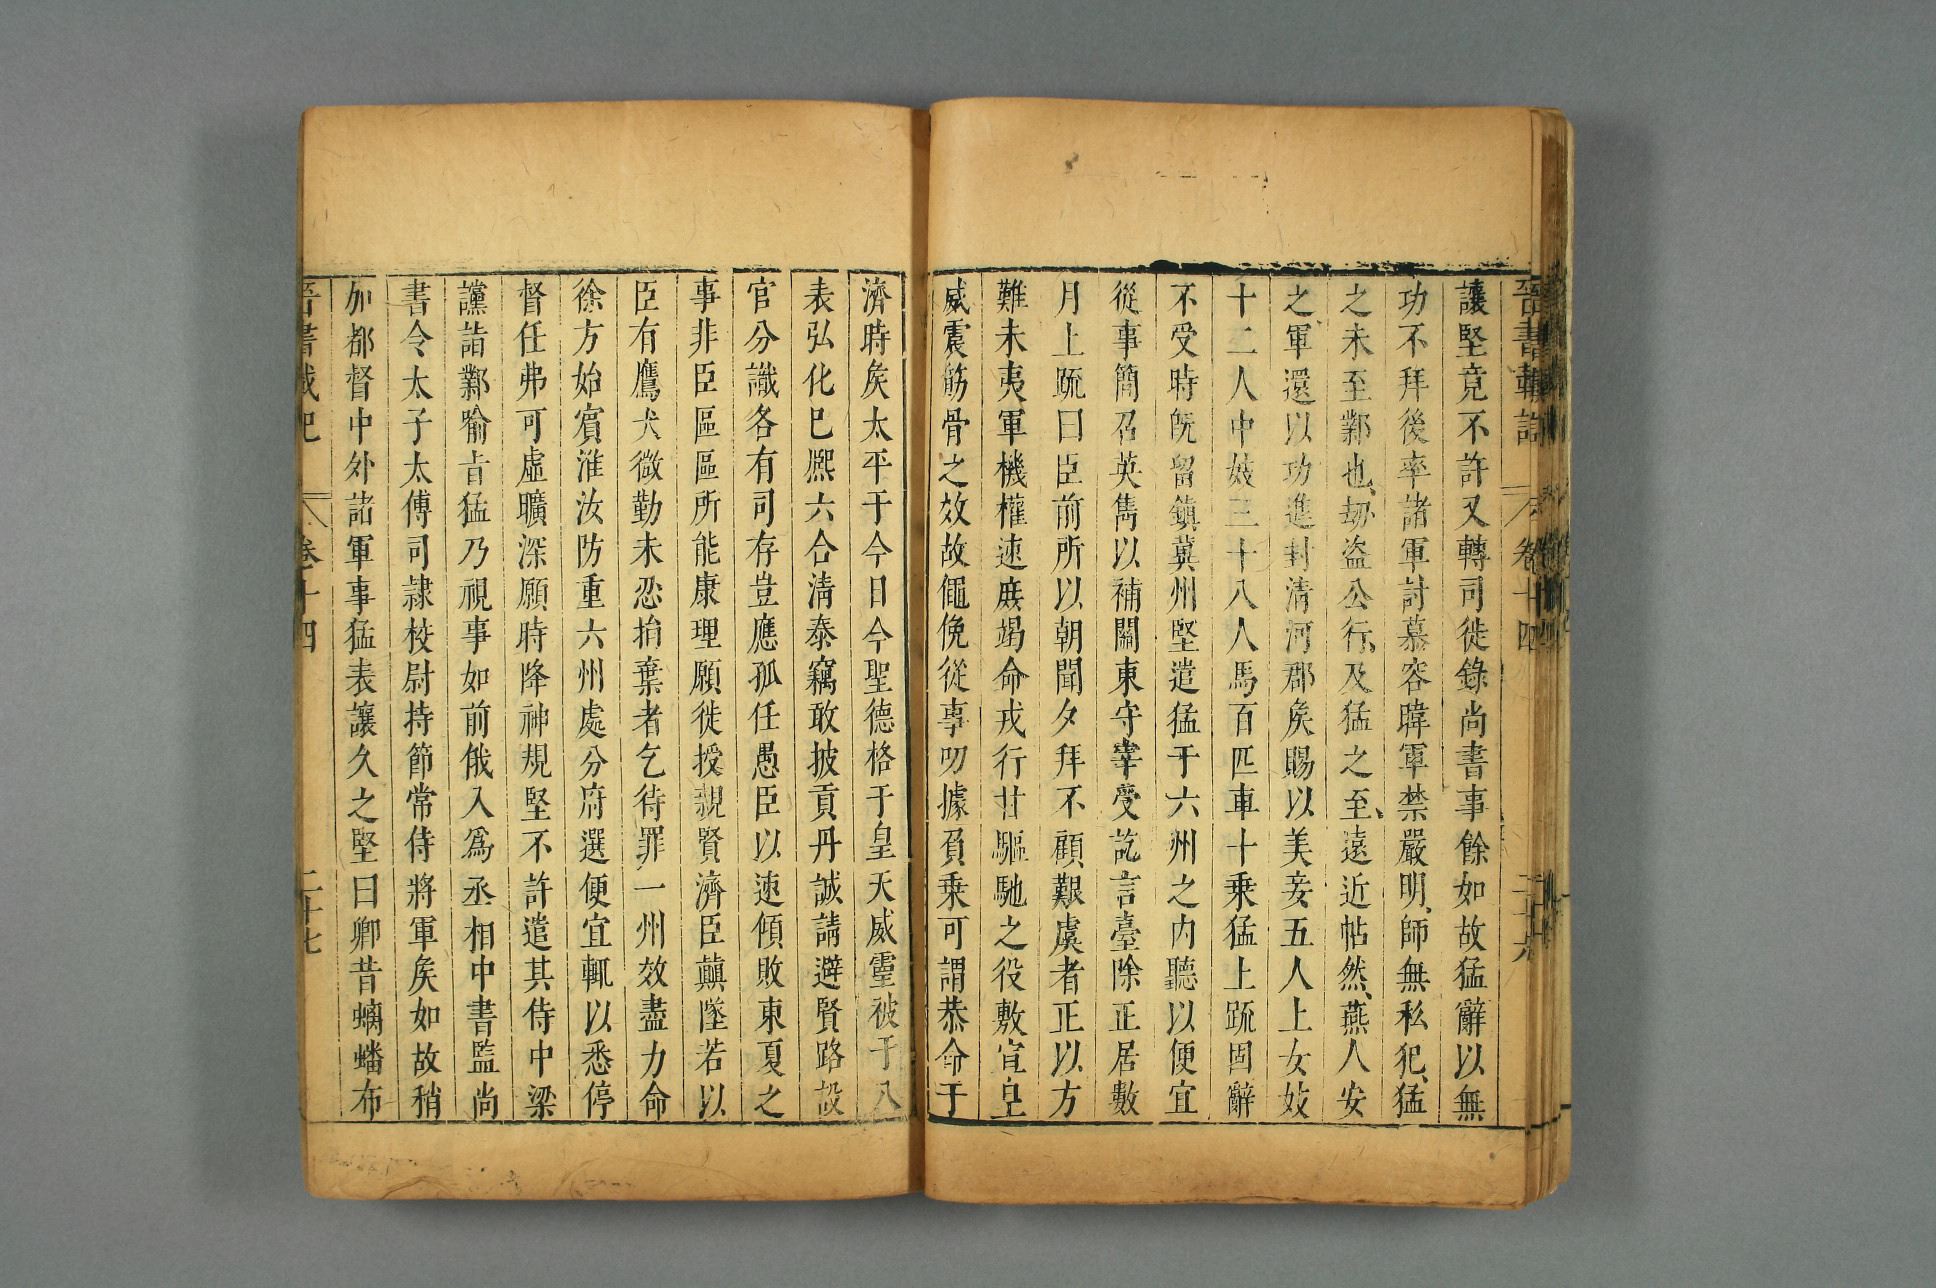 晉書載記 卷十四 二十六
讓堅竟不許又轉司徙錄尚書事餘如故猛辭以無
功不拜後率諸軍討慕容暐軍禁嚴明師無私犯猛
之未至鄴也刼盜公行及猛之至遠近帖然燕人安
之軍還以功進封淸河郡矦賜以美妾五人上女妓
十二人中妓三十八人馬百匹車十乗猛上疏固辭
不受時旣留鎮冀州堅遣猛于六州之内聽以便宜
從事簡召英雋以補關東守宰受訖言臺除正居數
月上疏曰臣前所以朝聞夕拜不顧艱虞者正以方
難未夷軍機權速庶竭命戎行甘驅馳之役敷宣皇
威震筋骨之效故僶俛從事叨據負乗可謂恭命于
濟時矦太平于今日今聖德格于皇天威靈被于八
表弘化巳熈六合淸泰竊敢披貢丹誠請避賢路設
官分識各有司存豈應孤任愚臣以速傾敗東夏之
事非臣區區所能康理願徙授親賢濟臣顚墜若以
臣有鷹犬微勤未忍捐棄者乞待罪一州效盡力命
徐方始賓淮汝防重六州處分府選便宜輒以悉停
督任弗可虛曠深願時降神規堅不許遣其侍中梁
讜詣鄴喻㫖猛乃視事如前俄入爲丞相中書監尚
書令太子太傅司隷校尉持節常侍將軍矦如故稍
加都督中外諸軍事猛表讓久之堅曰卿昔螭蟠布
晉書載記 卷十四 二十七